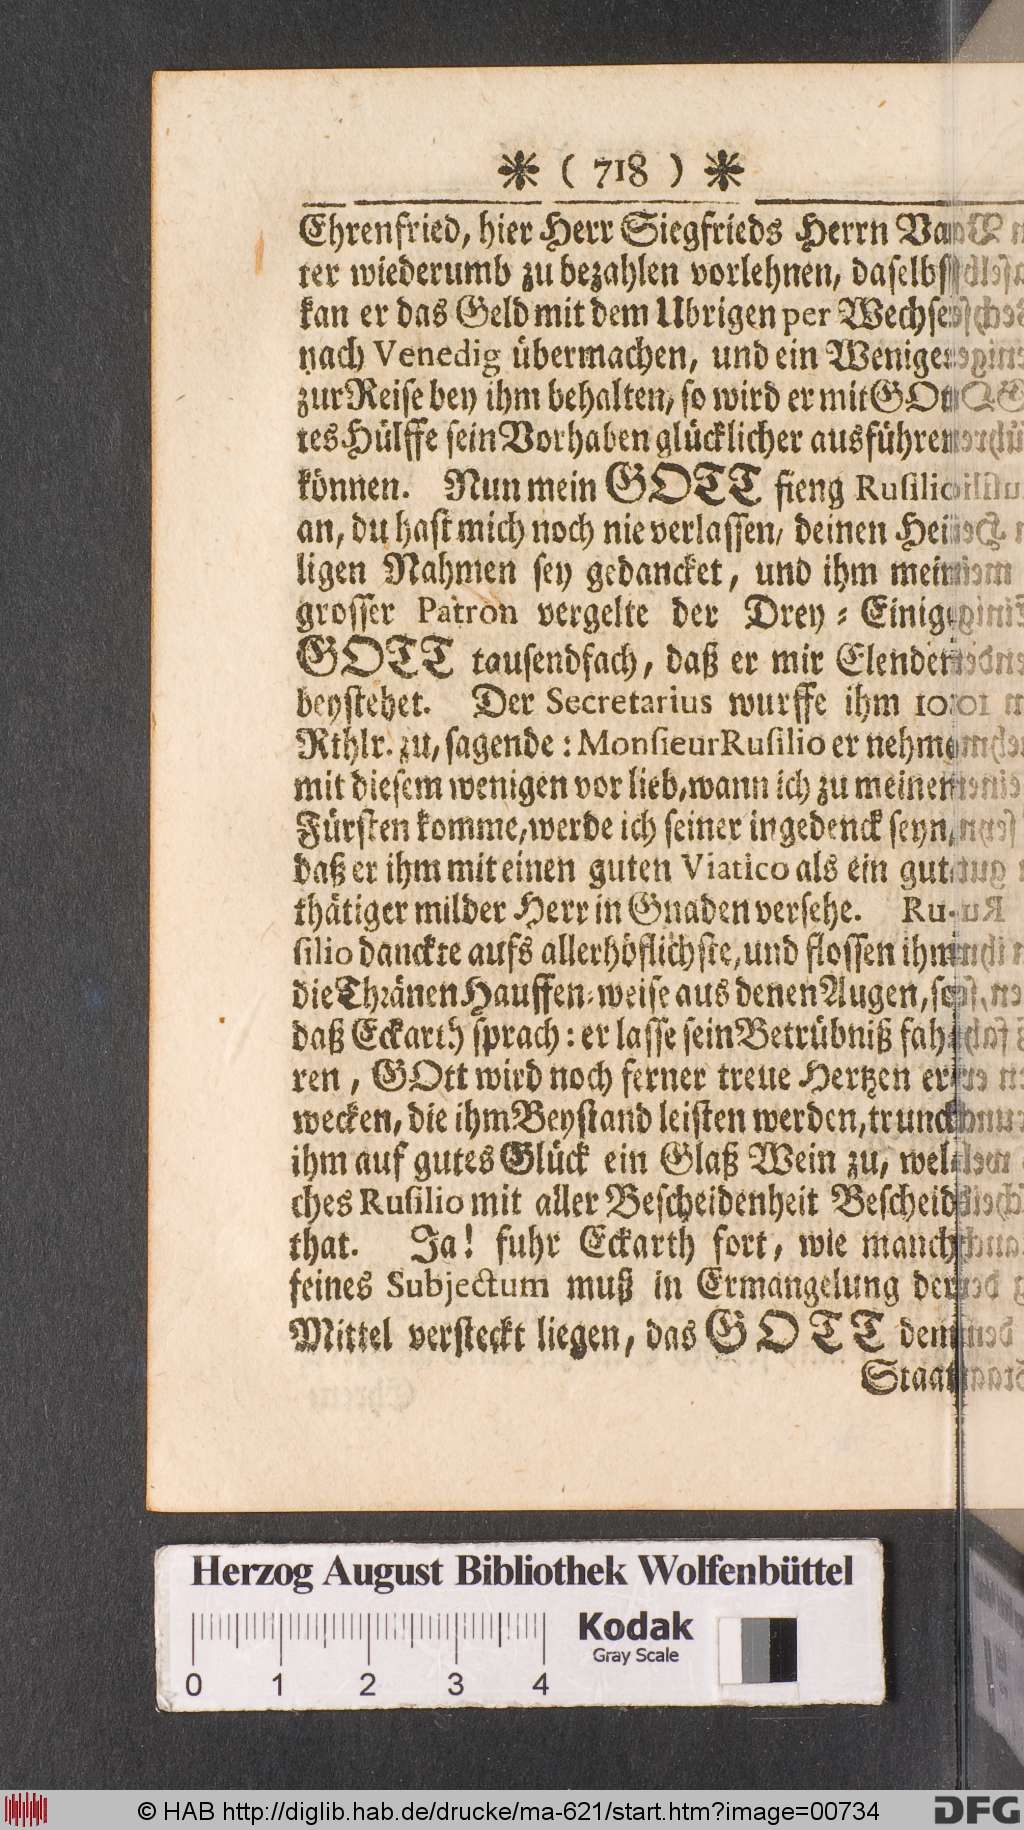 ( 718 )
Ehrenfried, hier Herr Siegfrieds Herrn Va-
ter wiederumb zu bezahlen vorlehnen, daselbst
kan er das Geld mit dem Ubrigen per Wechsel
nach Venedig übermachen, und ein Weniges
zur Reise bey ihm behalten, so wird er mit GOt-
tes Hülffe sein Vorhaben glücklicher ausführen
können. Nun mein GOTT fieng Rusilio
an, du hast mich noch nie verlassen, deinen Hei-
ligen Nahmen sey gedancket, und ihm mein
grosser Patron vergelte der Drey-Einige
GOTT tausendfach, daß er mir Elenden
beystehet. Der Secretarius wurffe ihm 10.
Rthlr. zu, sagende: Monsieur Rusilio er nehme
mit diesem wenigen vor lieb, wann ich zu meinem
Fürsten komme, werde ich seiner ingedenck seyn,
daß er ihm mit einen guten Viatico als ein gut-
thätiger milder Herr in Gnaden versehe. Ru-
silio danckte aufs allerhöflichste, und flossen ihm
die Thränen Hauffen-weise aus denen Augen, so
daß Eckarth sprach: er lasse sein Betrübniß fah-
ren, GOtt wird noch ferner treue Hertzen er-
wecken, die ihm Beystand leisten werden, trunck
ihm auf gutes Glück ein Glaß Wein zu, wel-
ches Rusilio mit aller Bescheidenheit Bescheid
that. Ja! fuhr Eckarth fort, wie manch
feines Subjectum muß in Ermangelung der
Mittel versteckt liegen, das GOTT dem
Staat
Herzog August Bibliothek Wolfenbüttel
Kodak
Gray Scale
0 1 2 3 4
© HAB http://diglib.hab.de/drucke/ma-621/start.htm?image=00734
DFG